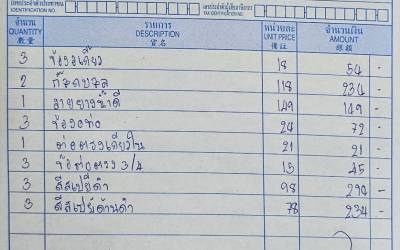 เลขประจำตัวประชาชน
IDENTIFICATION NO.
เลขประจำตัวผู้เสียภาษีอากร
TAX IDENTIFICATION NO.
จำนวน รายการ หน่วยละ จำนวนเงิน
QUANTITY DESCRIPTION UNIT PRICE AMOUNT
數量 貨名 價 銀額
3 18 54 -
2 ก๊อกบอล 118 234 -
1 สายยางน้ำดี 149 149 -
3 ข้องอท่อ 24 72 -
1 ต่อตรงเกลียวใน 21 21 -
3 ข้อต่อตรง 3/4 15 45 -
3 สีสเปย์ดำ 98 294 -
3 สีสเปย์ด้านดำ 78 234 -